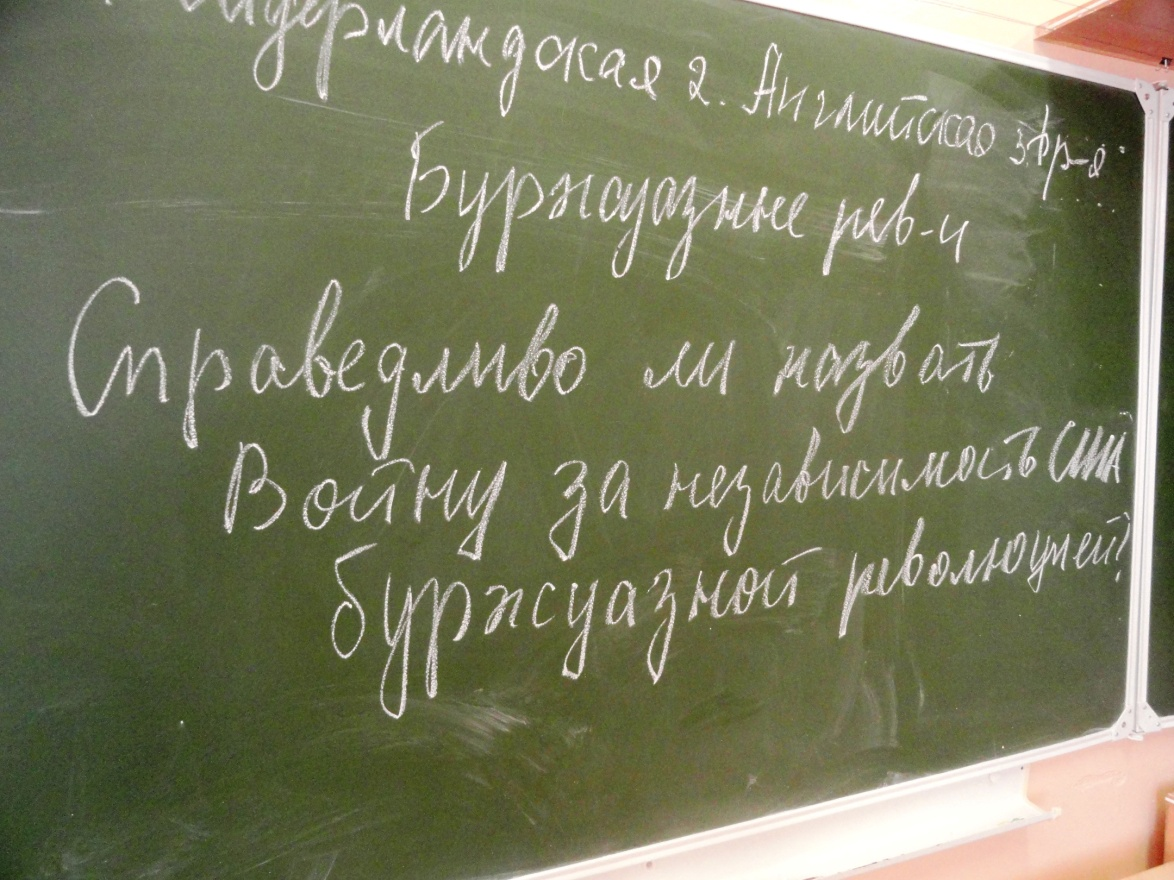 Нидерландская 2. Английская 3. фр-я
Буржуазные рев-и
Справедливо ли назвать
Войну за независимость США
буржуазной революцией?